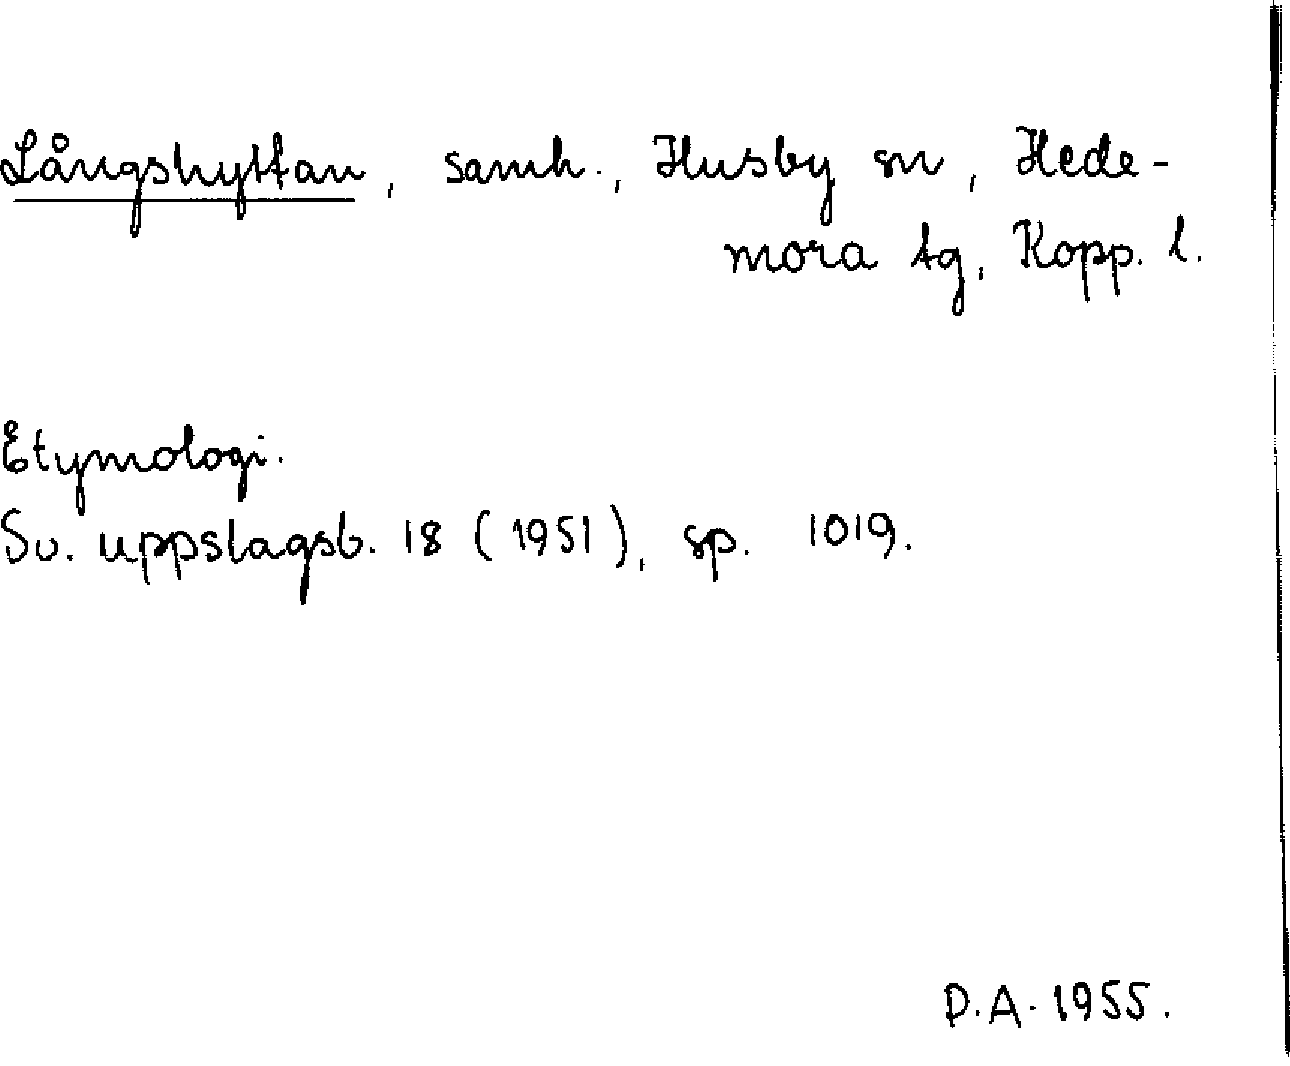 Långshyttan, samh., Husby sn, Hede-
mora tg, Kopp. l.
Etymologi.
Sv. uppslagsb. 18 (1951), sp. 1019.
P.A. 1955.